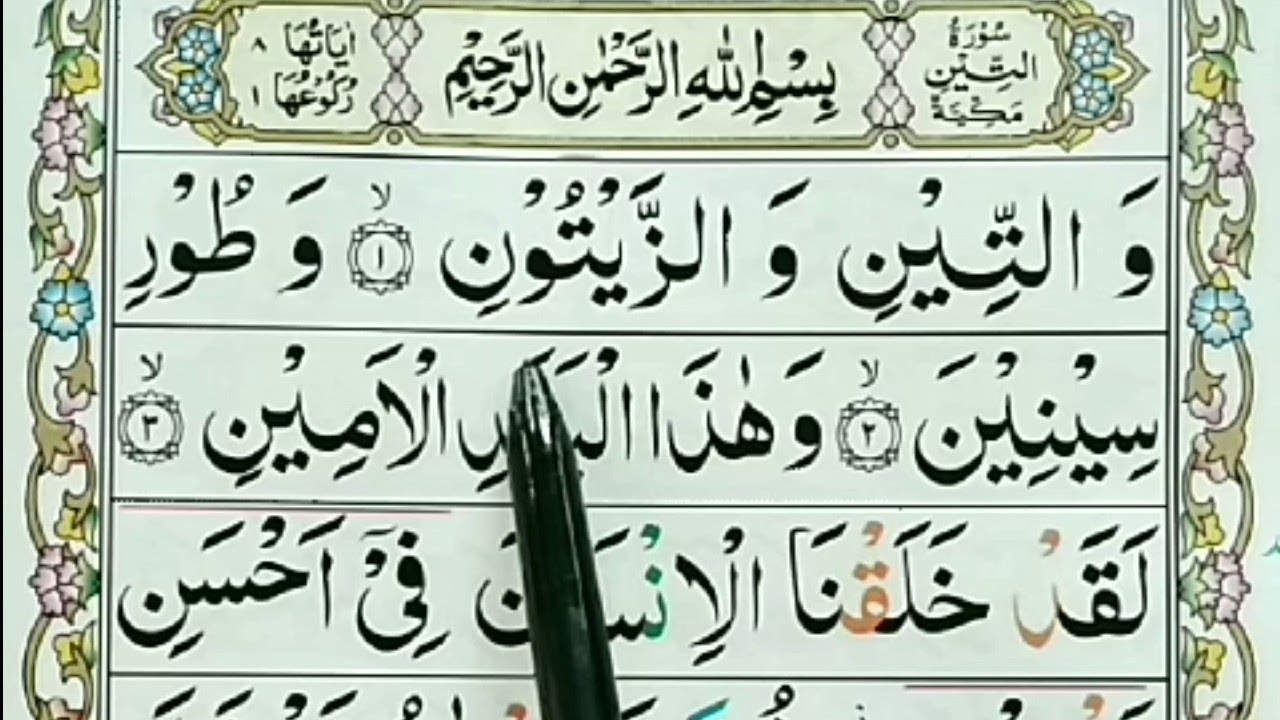 سُوْرَةُ التِّيْنِ مَكِّيَّةٌ
بِسْمِ اللّٰهِ الرَّحْمٰنِ الرَّحِيْمِ
اٰيَاتُهَا ٨ رُكُوْعُهَا ١
وَ التِّيْنِ وَ الزَّيْتُوْنِ ۙ ١ وَ طُوْرِ
سِيْنِيْنَ ۙ ٢ وَ هٰذَا الْبَلَدِ الْاَمِيْنِ ۙ ٣
لَقَدْ خَلَقْنَا الْاِنْسَانَ فِيْۤ اَحْسَنِ